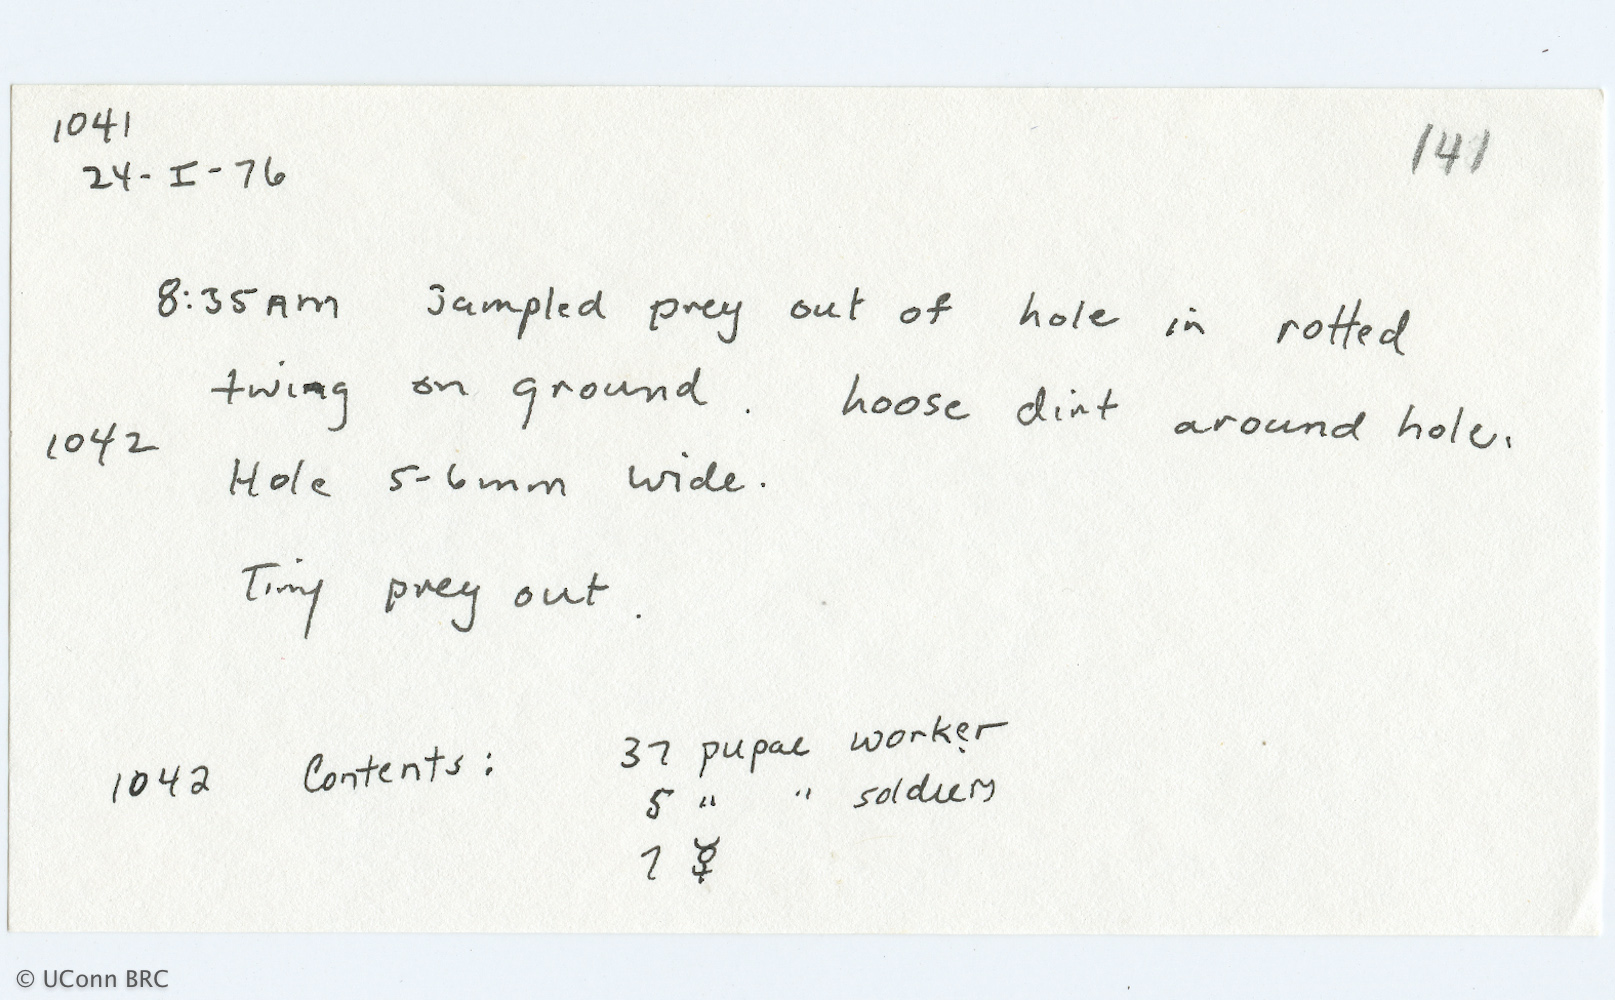 1041
141
24-I-76
8:35 AM Sampled prey out of hole in rotted
twing on ground. Loose dirt around hole.
1042
Hole 5-6mm wide.
Tiny prey out.
1042 Contents: 37 pupae worker
5 " " soldiers
7 ☿
© UConn BRC